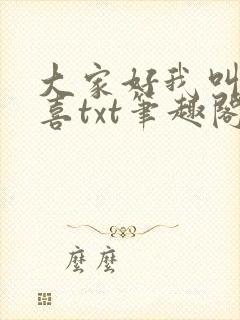 大家好我叫
喜txt笔趣阁
麼麼